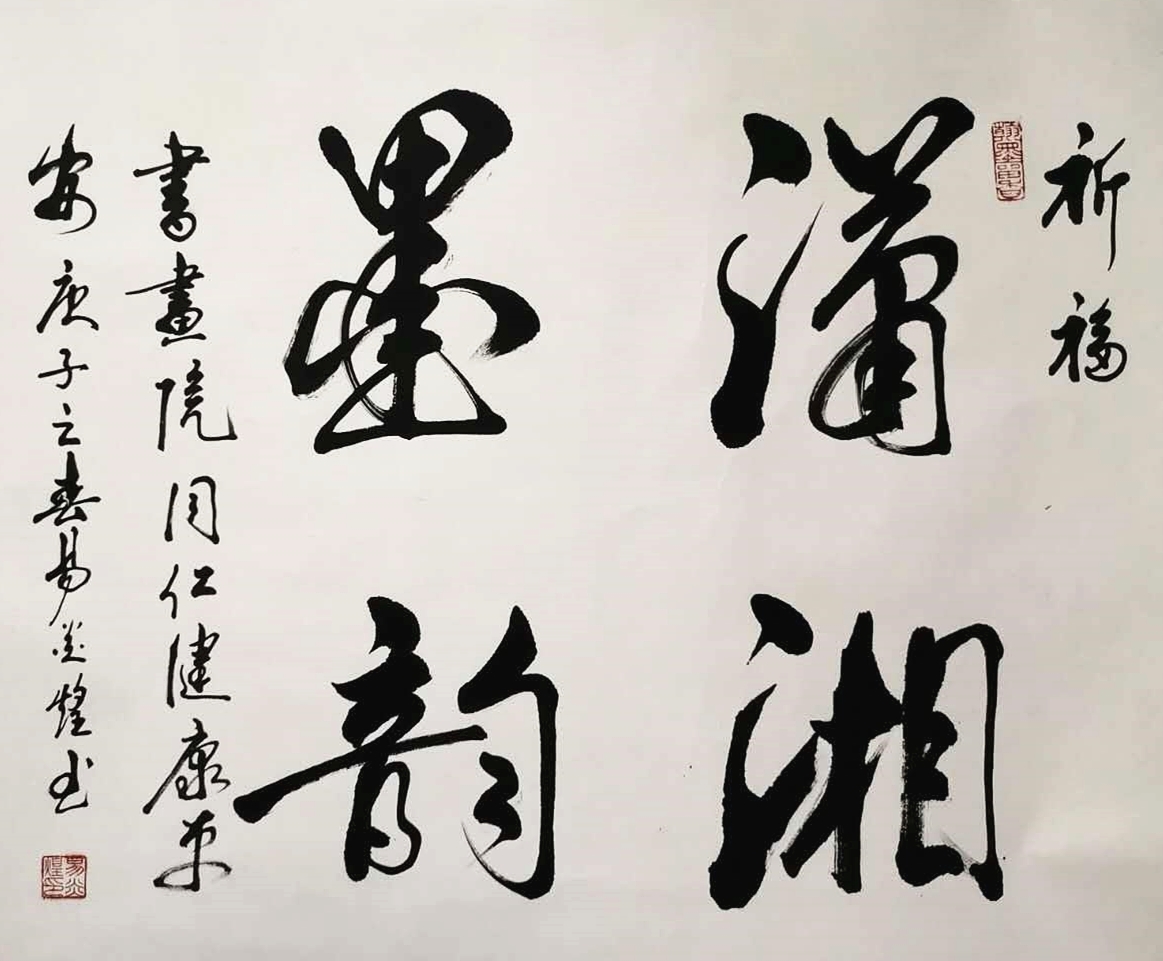 祈福
潇湘
墨韵
書畫院同仁健康平
安庚子之春易炎煌书
易炎煌印